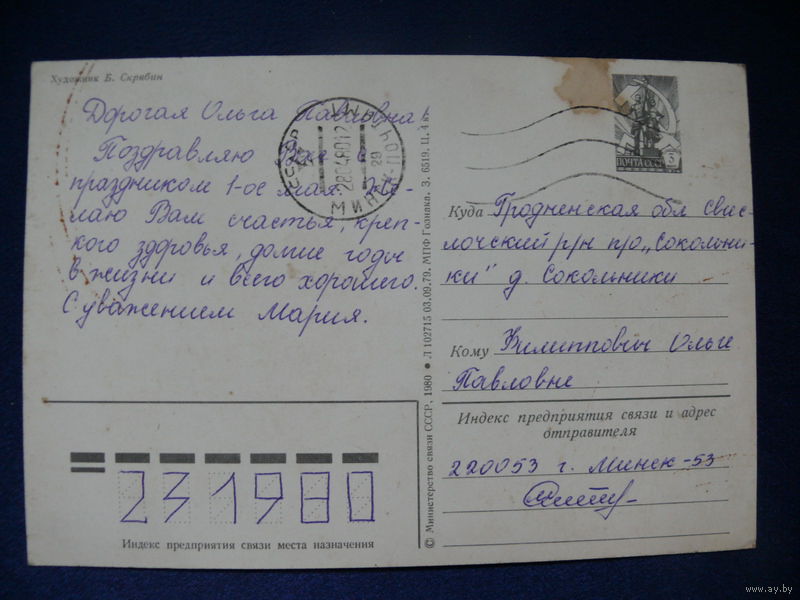 Художник Б. Скрябин
Дорогая Ольга Павловна
Поздравляю Вас с
праздником 1-ое мая. Же-
лаю Вам счастья, креп-
кого здоровья, долгие годы
в жизни и всего хорошего.
С уважением Мария.
СССР МІНСК ПОЧТАМТ
28048012
29
МИНСК
231980
Индекс предприятия связи места назначения
© Министерство связи СССР, 1980 ● Л 102715 03.09.79. МПФ Гознака. З. 6519. Ц. 4 к.
ПОЧТА СССР 3
Куда Гродненская обл Свис-
лочский р/н п/о „Сокольни-
ки" д. Сокольники
Кому Филиппович Ольге
Павловне
Индекс предприятия связи и адрес
отправителя
220053 г. Минск-53
www.ay.by